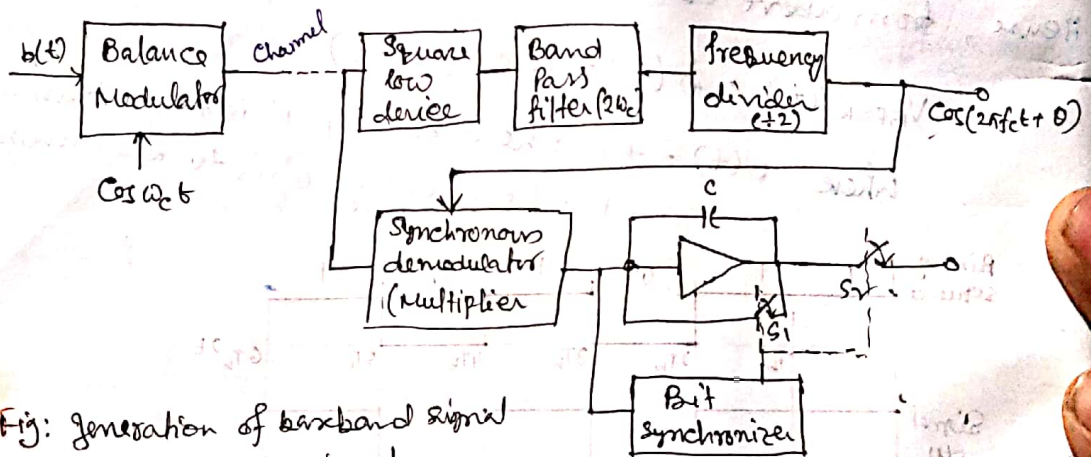 b(t)
Balance
Modulator
Cos ωc t
Channel
Square
low
device
Band
Pass
filter (2ωc
frequency
divider
(÷2)
Cos(2πfct + θ)
Synchronous
demodulator
(Multiplier
C
S1
S2
Bit
Synchronizer
Fig: generation of baseband signal